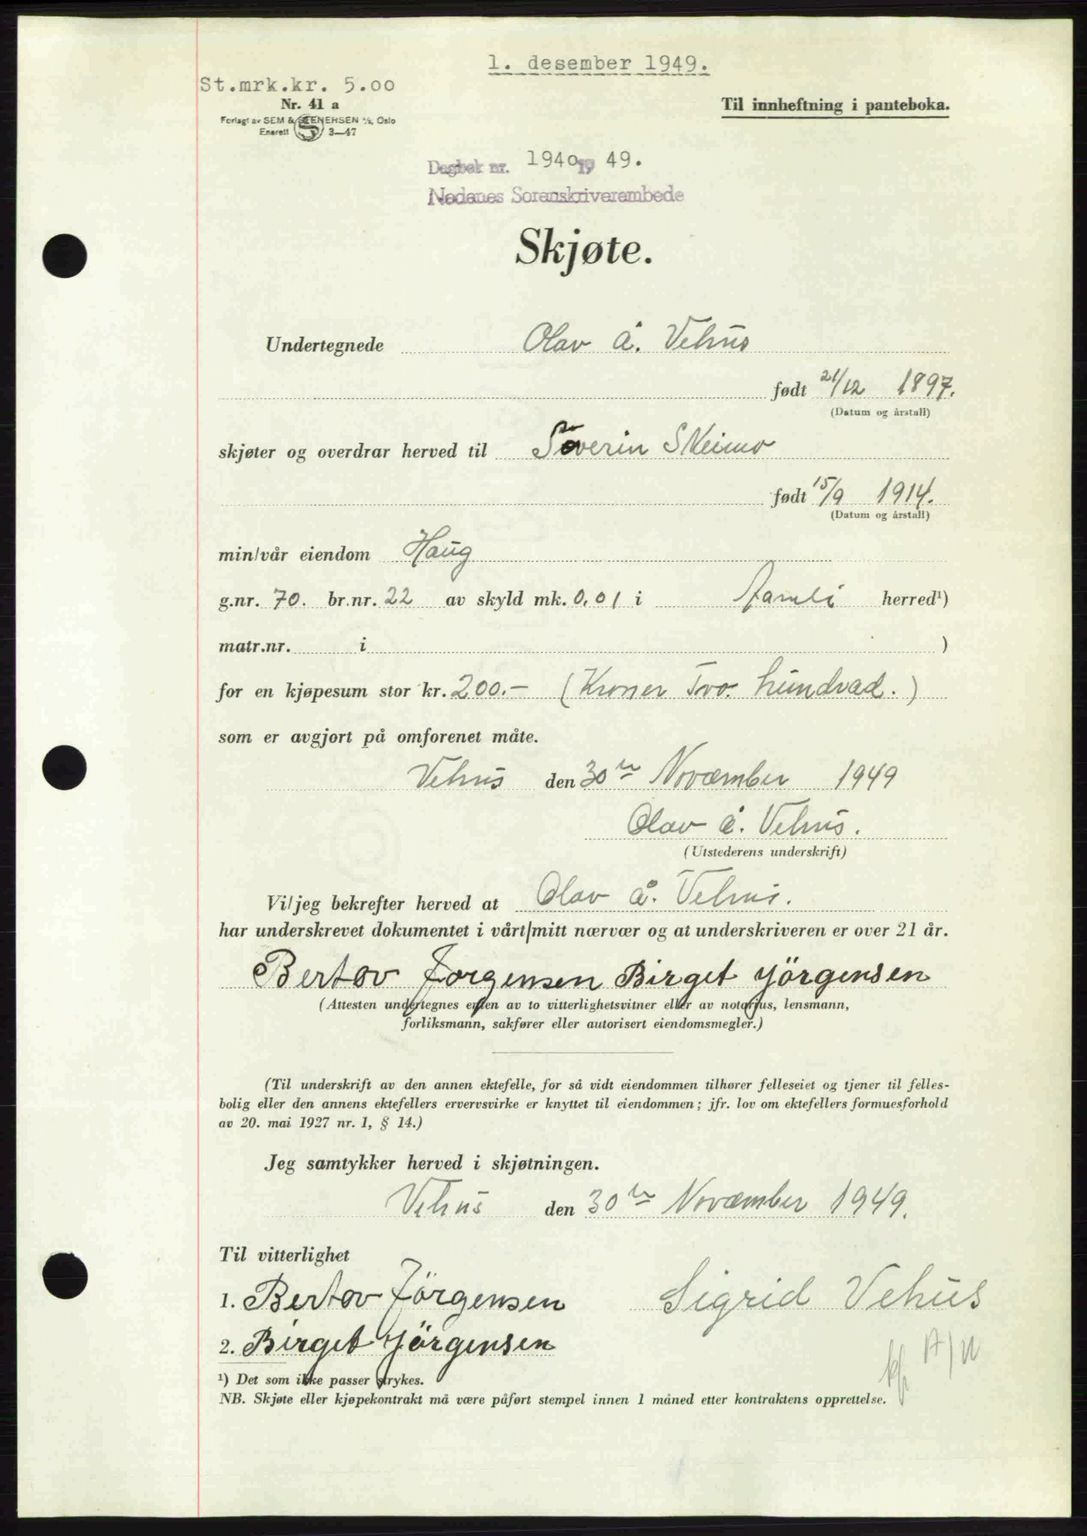 1. desember 1949.
St.mrk.kr. 5.00
Nr. 41 a
Til innheftning i panteboka.
Forlagt av SEM & STENERSEN A/S, Oslo
Enerett S 3—47
Dagbok nr. 1940 19 49.
Nedenes Sorenskriverembede
Skjøte.
Undertegnede Olav Å. Vehus
født 21/12 1897.
(Datum og årstall)
skjøter og overdrar herved til Severin Skeimo
født 15/9 1914.
(Datum og årstall)
min/vår eiendom Haug
g.nr. 70. br.nr. 22 av skyld mk. 0,01 i Aamli herred¹)
matr.nr. i )
for en kjøpesum stor kr. 200.- (Kroner Tvo hundrad.)
som er avgjort på omforenet måte.
Vehus den 30te Novæmber 1949
Olav Å. Vehus.
(Utstederens underskrift)
Vi/jeg bekrefter herved at Olav Å. Vehus.
har underskrevet dokumentet i vårt/mitt nærvær og at underskriveren er over 21 år.
Bertov Jorgensen Birget Jörgensen
(Attesten undertegnes enten av to vitterlighetsvitner eller av notarius, lensmann,
forliksmann, sakfører eller autorisert eiendomsmegler.)
(Til underskrift av den annen ektefelle, for så vidt eiendommen tilhører felleseiet og tjener til felles-
bolig eller den annens ektefellers ervervsvirke er knyttet til eiendommen; jfr. lov om ektefellers formuesforhold
av 20. mai 1927 nr. 1, § 14.)
Jeg samtykker herved i skjøtningen.
Vehus den 30te Novæmber 1949.
Til vitterlighet
1. Bertov Jörgensen Sigrid Vehus
2. Birget Jörgensen
¹) Det som ikke passer strykes.
NB. Skjøte eller kjøpekontrakt må være påført stempel innen 1 måned etter kontraktens opprettelse.